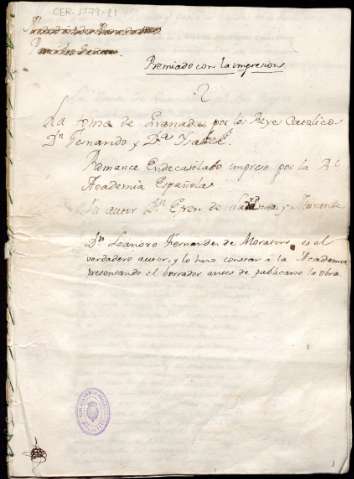 CER-1779-21
Premiado con la impresion
2
La toma de Granada por los Reyes Catolicos
Dn. Fernando y Da. Ysabel.
Romance Endecasilabo impreso por la Rl.
Academia Española
Su autor Dn. Efren de y Morante
Dn. Leandro Fernandez de Moratin es el
verdadero autor, y lo hizo constar á la Academia
presentando el borrador antes de publicarse la obra